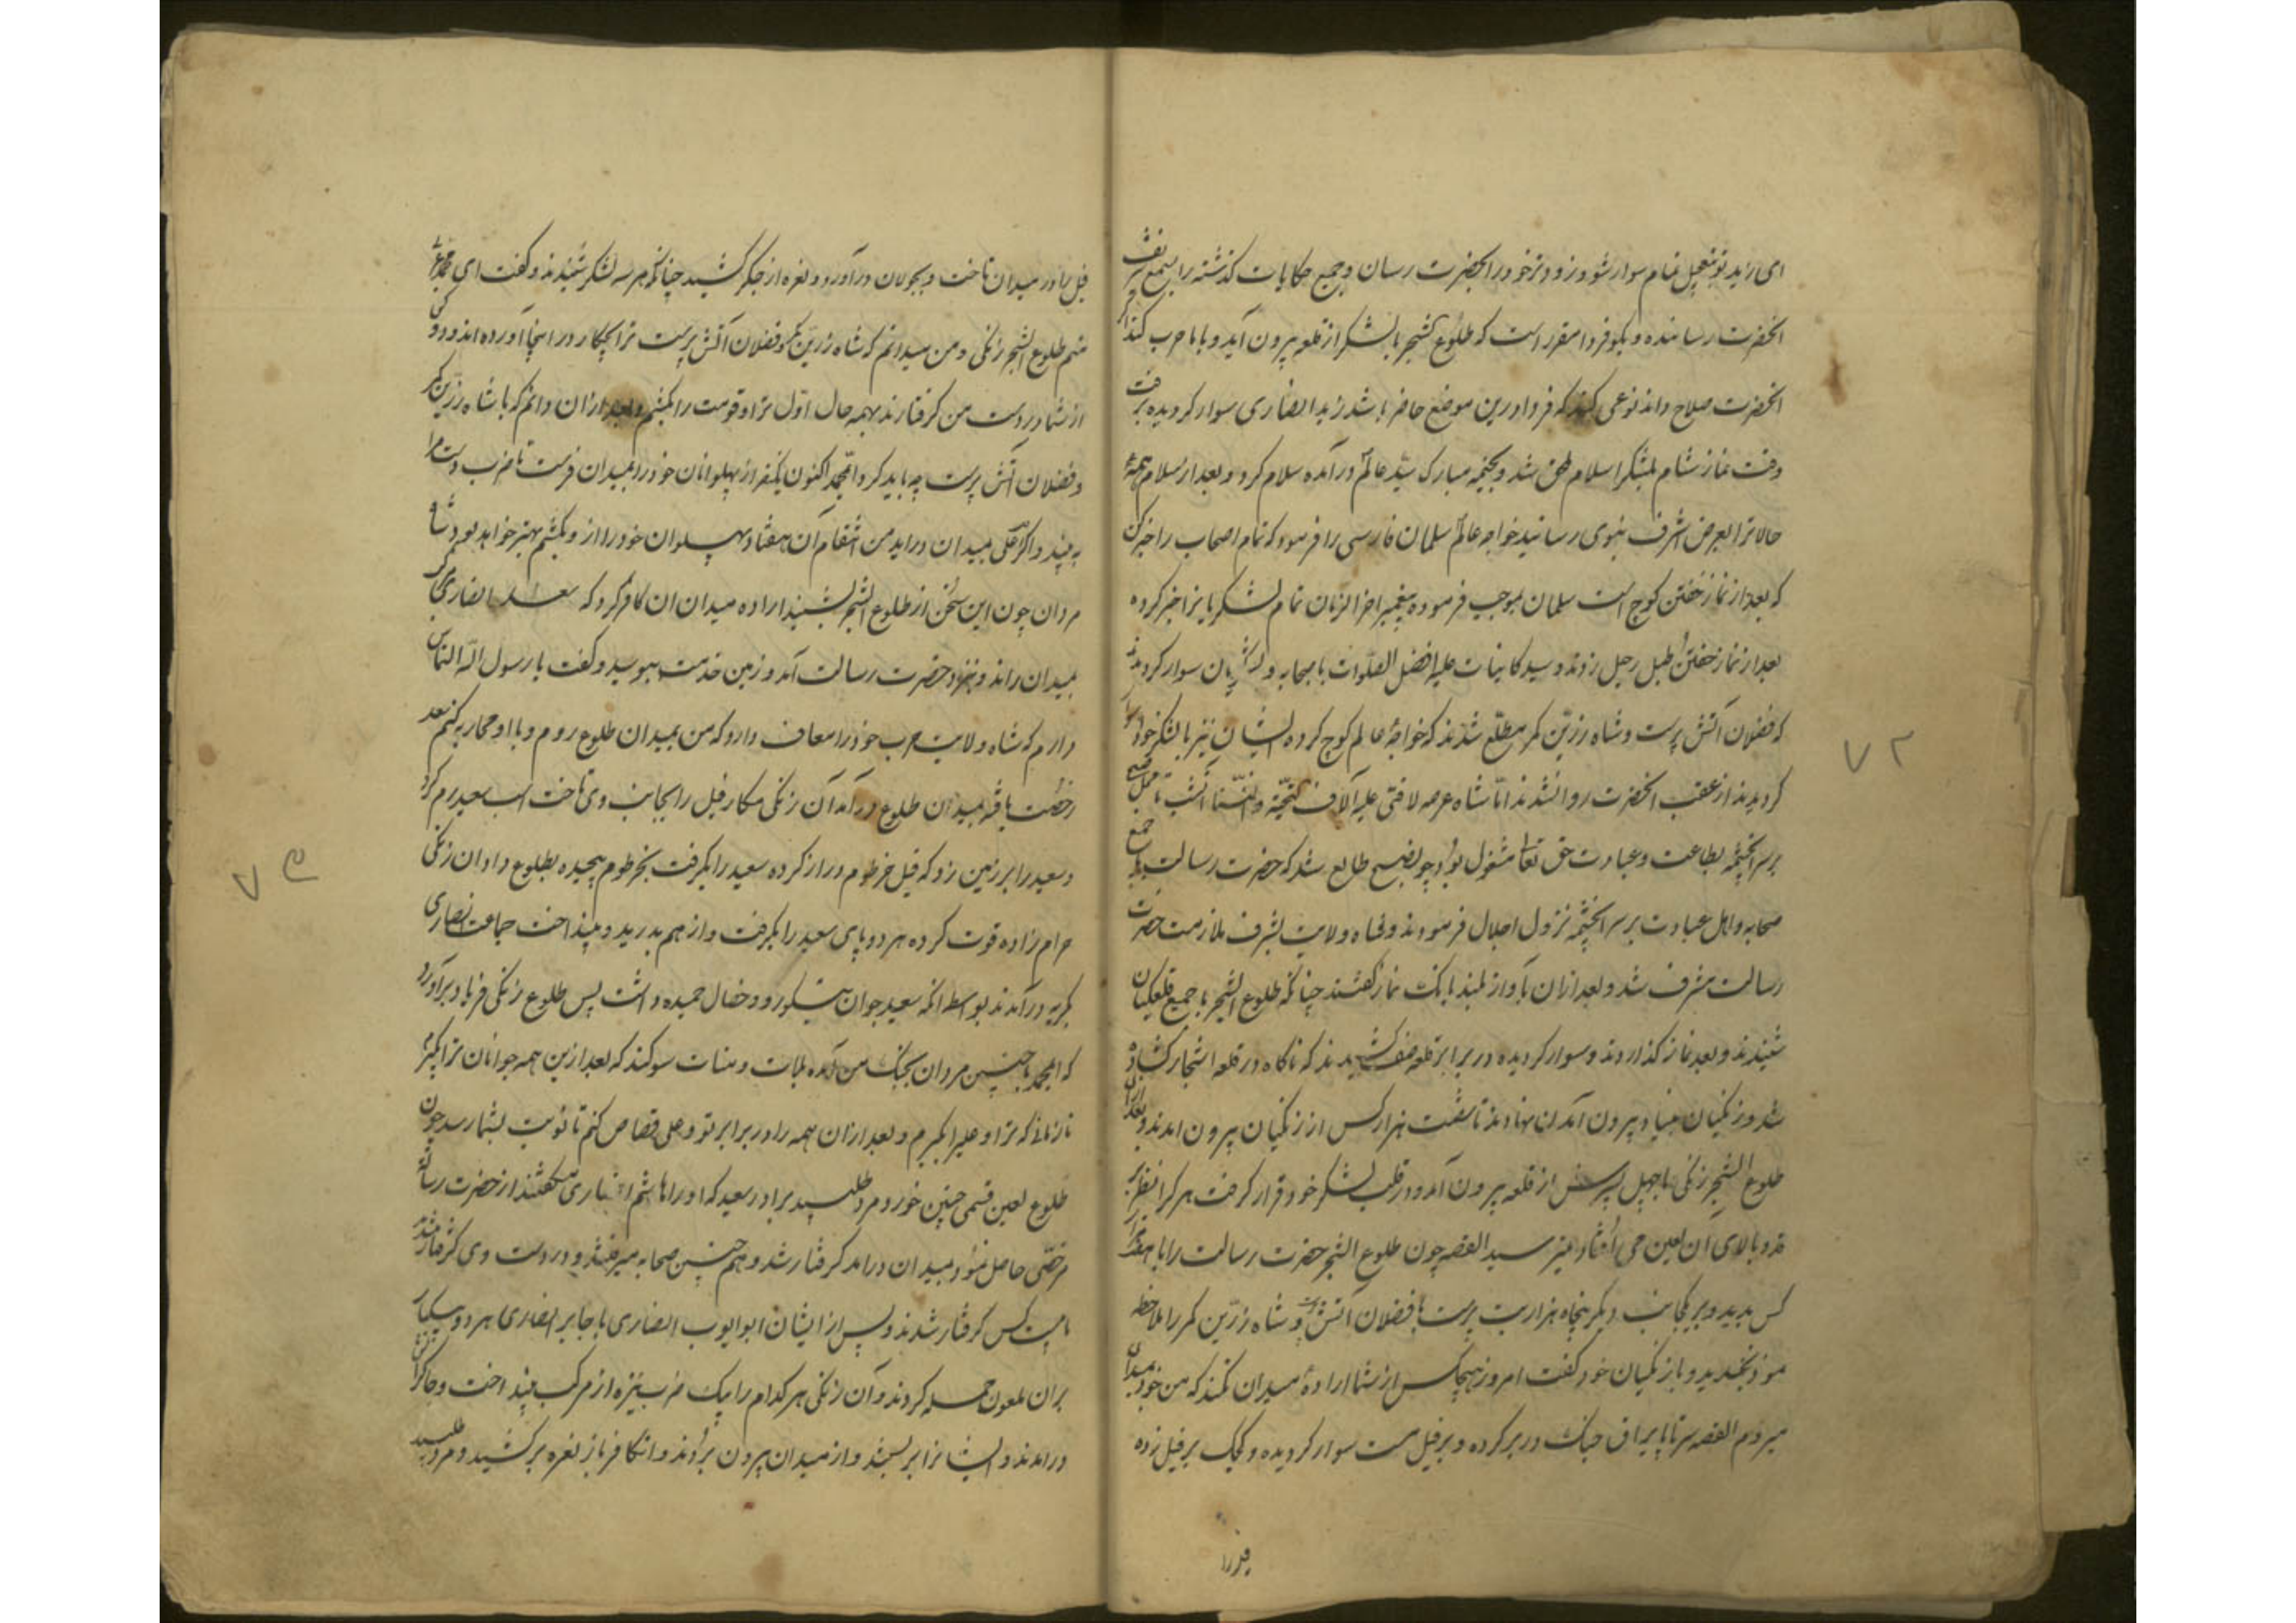 ای زید تو بتعجیل تمام سوار شو و زود تر خود را بحضرت رسان و جمیع حکایات گذشته را بسمع شریف
انحضرت رسانیده و بگو فردا مقرر است که طلوع الشجر با لشکر از قلعه بیرون آید و با ما حرب کند اگر
انحضرت صلاح داند نوعی کنند که فردا درین موضع حاضر باشد زید انصاری سوار کردیده برفت
وقت نماز شام بلشکر اسلام ملحق شد و بخیمه مبارک سید عالم درآمده سلام کرد و بعد از سلام همهٔ
حالاترا بعرض اشرف نبوی رسانید خواجه عالم سلمان فارسی را فرمود که تمام اصحاب را خبر کن
که بعد از نماز خفتن کوچ است سلمان بموجب فرموده پیغمبر اخرالزمان تمام لشکریانرا خبر کرده
بعد از نماز خفتن طبل رحیل زدند و سید کاینات علیه افضل الصلوات با صحابه و لشکریان سوار کردیدند
که فضلان آتش پرست و شاه زرین کمر مطلع شدند که خواجهٔ عالم کوچ کرده ایشان نیز با لشکر خود سوار
کردیدند از عقب انحضرت روانه شدند اما شاه عرصه لافتی علیه آلاف التحیة والثنا آنشب تا محل صبح
بر سر انچشمه بطاعت و عبادت حق تعالی مشغول بود چو صبح طالع شد که حضرت رسالت با جمع
صحابه و اهل عبادت بر سر انچشمه نزول اجلال فرمودند و شاه ولایت بشرف ملازمت حضرت
رسالت مشرف شد و بعد ازان بآواز بلند بانک نماز گفتند چنانکه طلوع الشجر با جمیع قلعکیان
شنیدند و بعد نماز گذاردند و سوار کردیده در برابر قلعه صف کشیدند که ناکاه در قلعه اشجار کشاده
شد و زنکیان بنیاد بیرون آمدن نهادند تا شصت هزار کس از زنکیان بیرون امدند و بعد ازان
طلوع الشجر زنکی با چهل پسرش از قلعه بیرون آمد و در قلب لشکر خود قرار گرفت هر کرا نظر بر
قد و بالای آن لعین می افتاد میترسید القصه چون طلوع الشجر حضرت رسالت را با هفتاد هزار
کس بدید و بر یکجانب دیگر پنجاه هزار بت پرست با فضلان آتش پرست و شاه زرین کمر را ملاحظه
نمود بخندید و با زنکیان خود گفت امروز هیچکس از شما ارادهٔ میدان نکند که من خود بمیدان
میروم القصه سر تا پا یراق جنک در بر کرده و بر فیل مست سوار کردیده و کجک بر فیل زده
فیل را
۷۲
فیل را در میدان تاخت و بجولان درآورد و نعره از جگر کشید چنانکه هر سه لشکر شنیدند و گفت ای محمد عربی
منم طلوع الشجر زنکی و من میدانم که شاه زرین کمر و فضلان آتش پرست ترا بچکار در اینجا آورده اند و دو کس
از شما در دست من گرفتارند بهمه حال اول ترا و قومت را بکشم و بعد ازان دانم که با شاه زرین کمر
و فضلان آتش پرست چه باید کرد ای محمد اکنون یکنفر از پهلوانان خود را بمیدان فرست تا ضرب دست مرا
به بیند و اگر علی بمیدان دراید من انتقام آن هفتاد پهلوان خود را از و بکشم بهتر خواهد بود شاه
مردان چون این سخن از طلوع الشجر بشنید اراده میدان ان کافر کرد که سعد انصاری مرکب
بمیدان راند و بنزد حضرت رسالت آمد و زمین خدمت ببوسید و گفت یا رسول الله التماس
دارم که شاه ولایت حرب خود را معاف دارد که من بمیدان طلوع روم و با او محاربه کنم سعد
رخصت یافته بمیدان طلوع درآمد آن زنکی مکار فیل را بجانب وی تاخت اسب سعید رم کرد
و سعید را بر زمین زد که فیل خرطوم دراز کرده سعید را بگرفت بخرطوم پیچیده بطلوع داد ان زنکی
حرام زاده قوت کرده هر دو پای سعید را بگرفت و از هم بدرید و بینداخت جماعت انصاری
بگریه درآمدند بواسطه انکه سعید جوان نیکورو و خصال حمیده داشت پس طلوع زنکی فریاد برآورد
که ای محمد با چنین مردان بجنک من آمده بلات و منات سوگند که بعد ازین همه جوانان ترا بگیرم
تا زمانی که ترا و علی را بگیرم و بعد ازان همه را در برابر تو و علی قصاص کنم تا نوبت بشما رسد چون
طلوع لعین قسمی چنین خورد و مرد طلبید برادر سعید که او را هاشم انصاری میکفتند از حضرت رسالت
مرخصی حاصل نمود بمیدان درامد گرفتار شد و همچنین صحابه میرفتند و در دست وی گرفتار میشدند
تا بیست کس گرفتار شدند و پس از ایشان ابو ایوب انصاری با جابر انصاری هر دو بیکبار
بران ملعون حمله کردند و آن زنکی هر کدام را بیک ضرب نیزه از مرکب بینداخت و چاکرانش
درامدند و ایشانرا بر بستند و از میدان بیرون بردند و انکافر باز نعره برکشید و مرد طلبید
۷۳